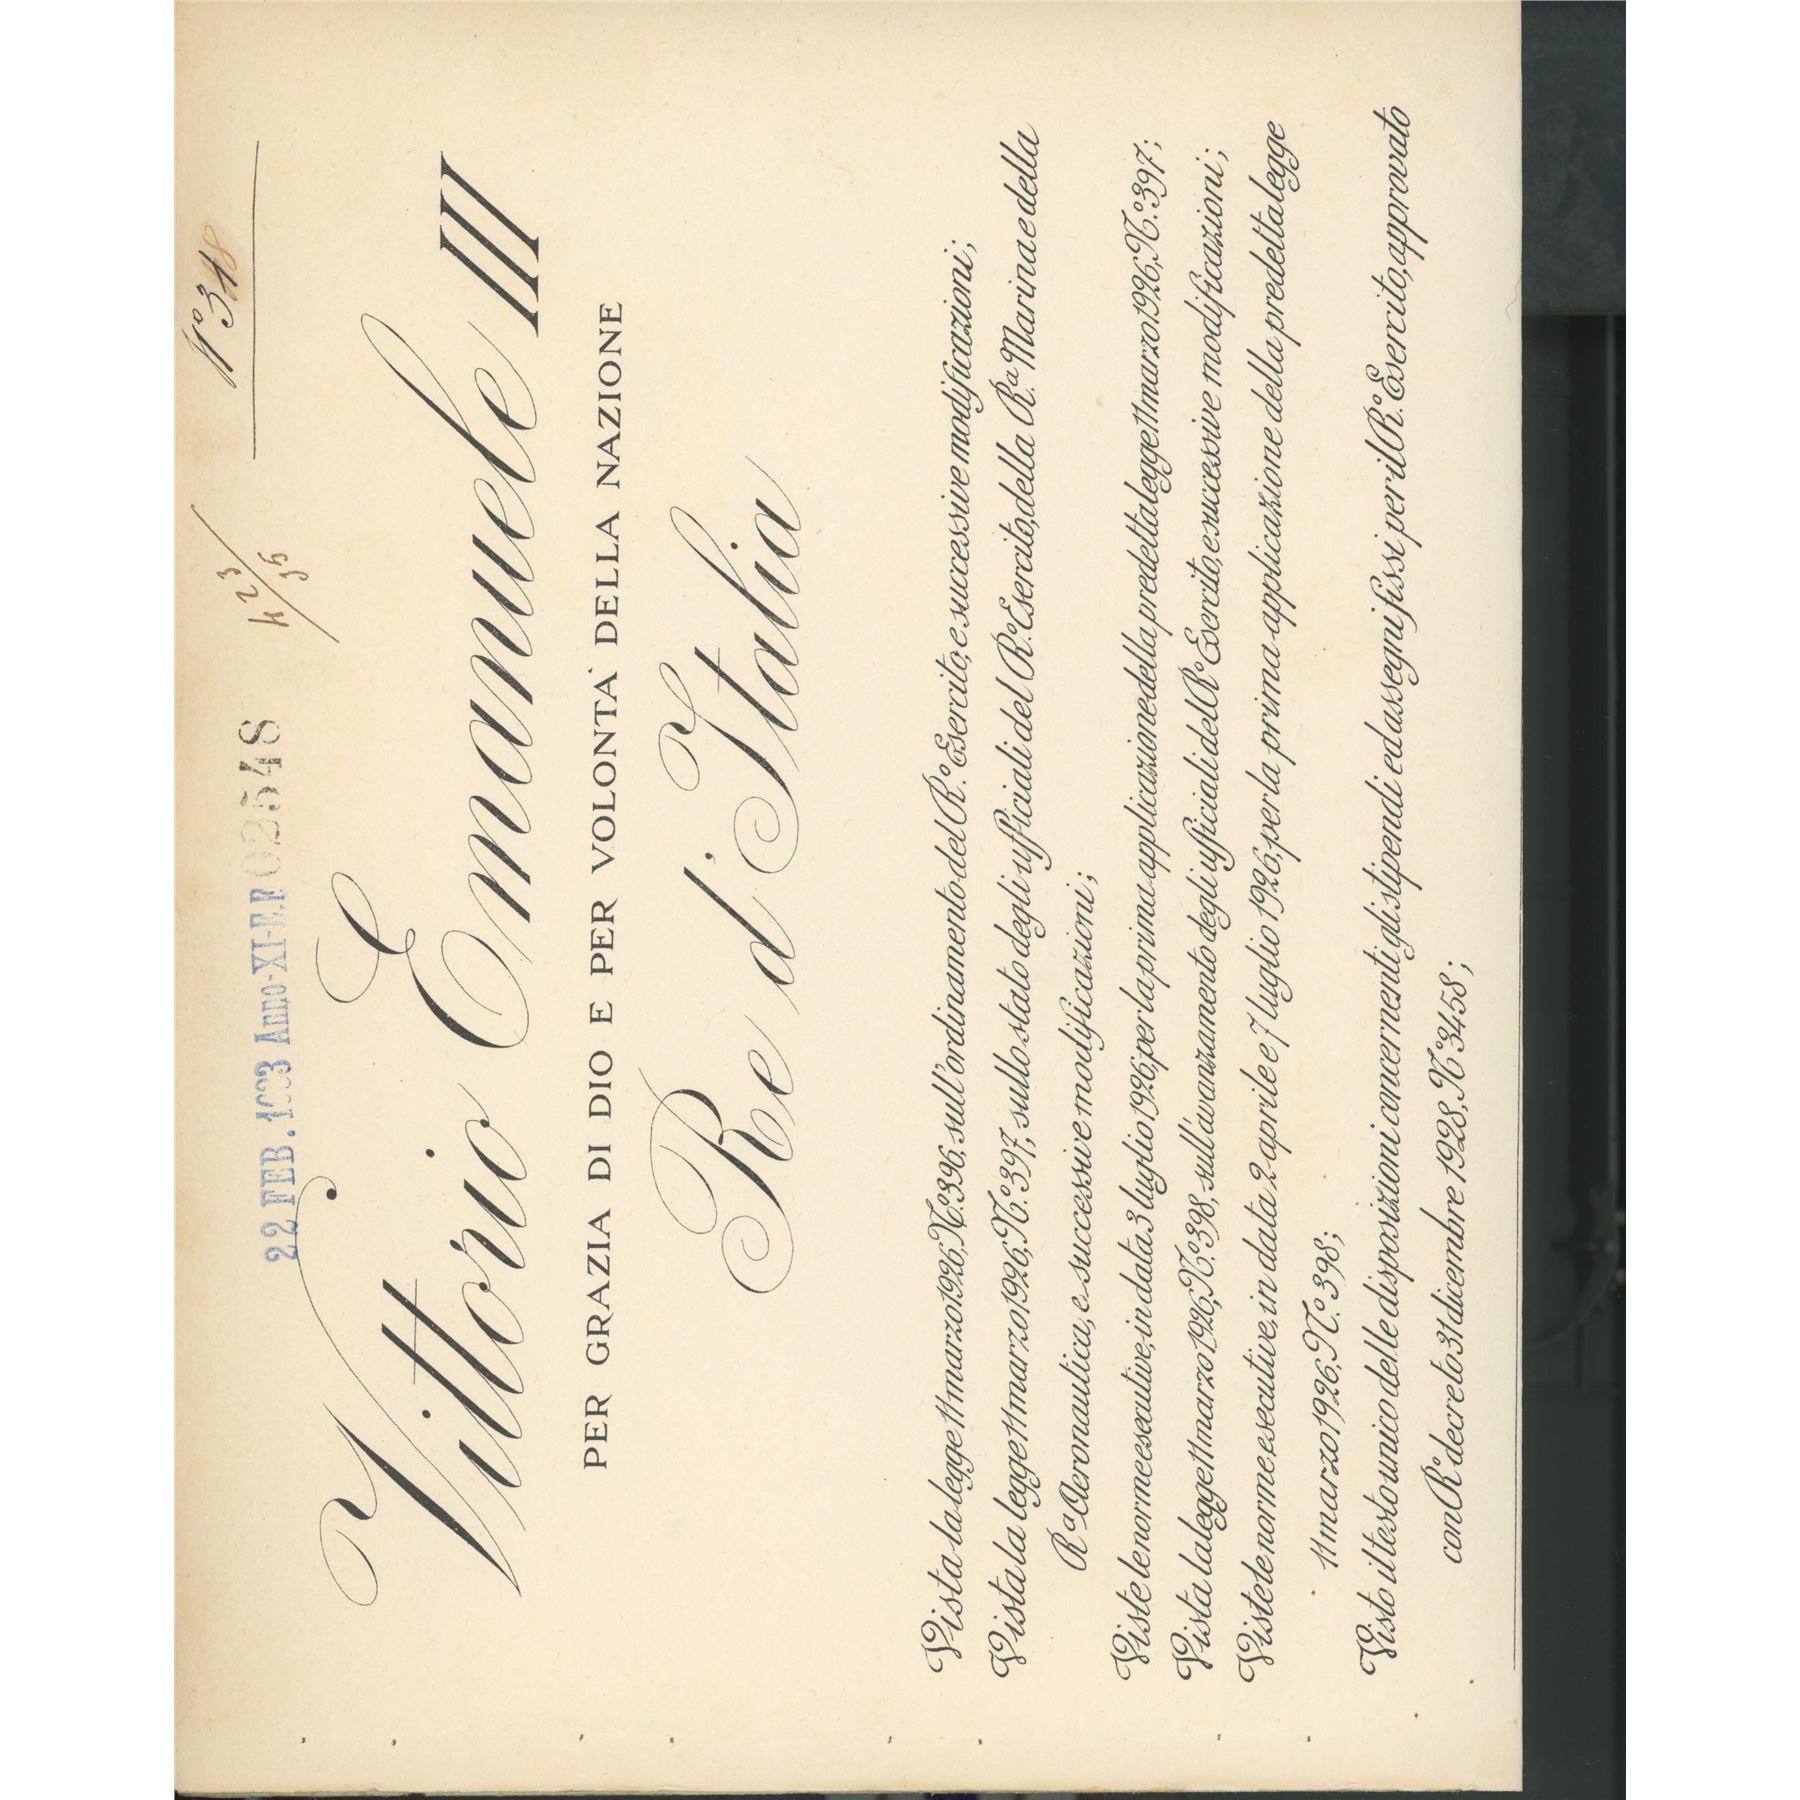 N° 318
423/35
22 FEB. 1933 Anno-XI-E.F. 02548
Vittorio Emanuele III
PER GRAZIA DI DIO E PER VOLONTA' DELLA NAZIONE
Re d'Italia
Vista la legge 11 marzo 1926, N.° 396, sull'ordinamento del R.° Esercito, e successive modificazioni;
Vista la legge 11 marzo 1926, N.° 397, sullo stato degli ufficiali del R.° Esercito, della R.a Marina e della
R.a Aeronautica, e successive modificazioni;
Viste le norme esecutive, in data 3 luglio 1926, per la prima applicazione della predetta legge 11 marzo 1926, N.° 397;
Vista la legge 11 marzo 1926, N.° 398, sull'avanzamento degli ufficiali del R.° Esercito, e successive modificazioni;
Viste le norme esecutive, in data 2 aprile e 7 luglio 1926, per la prima applicazione della predetta legge
11 marzo 1926, N.° 398;
Visto il testo unico delle disposizioni concernenti gli stipendi ed assegni fissi per il R.° Esercito, approvato
con R.° decreto 31 dicembre 1928, N.° 3458;